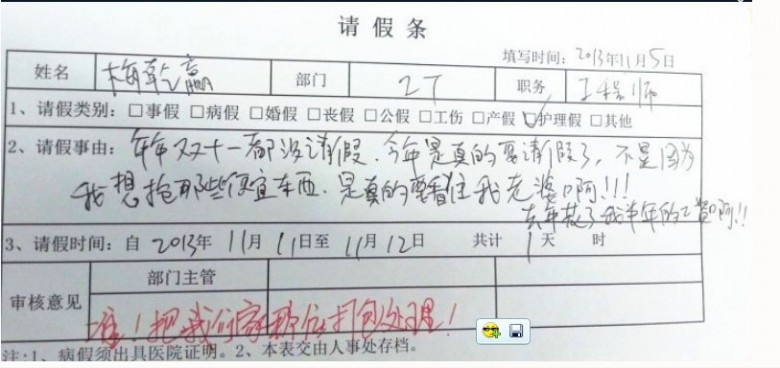 请假条
填写时间：2013年11月5日
姓名 梅乾赢 部门 IT 职务 工程师
1、请假类别：□事假 □病假 □婚假 □丧假 □公假 □工伤 □产假 ☑护理假 □其他
2、请假事由：年年双十一都没请假，今年是真的要请假了，不是因为
我想抢那些便宜东西，是真的要看住我老婆啊!!!
去年花了我半年的工资啊!!
3、请假时间：自 2013年 11月 11日至 11月 12日 共计 1天 时
部门主管
审核意见
准！把我们家那位打包处理！
注：1、病假须出具医院证明。2、本表交由人事处存档。